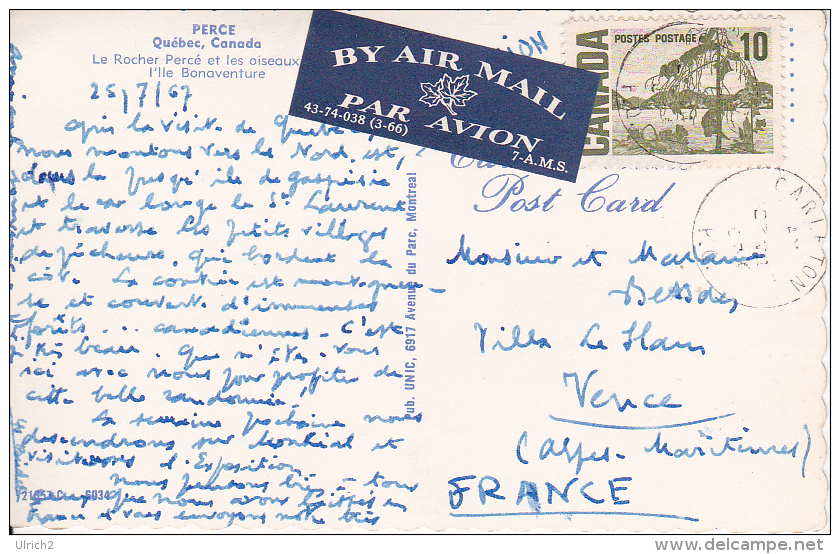 PERCE
Québec, Canada
Le Rocher Percé et les oiseaux
l'Ile Bonaventure
25/7/67
Après la visite de Québec
nous montons vers le Nord est,
dans la presqu'ile de gaspésie
et le car longe le St Laurent
et traverse les petits villages
de pêcheurs qui bordent la
côte. La contrée est montagneu-
se et couvert d'immenses
forêts... canadiennes. C'est
très beau. Que n'êtes-vous
ici avec nous pour profiter de
cette belle randonnée!
La semaine prochaine nous
descendrons sur Montréal et
visiterons l'Exposition
nous pensons bien à tous
que nous avons laissés en
France et vous envoyons notre très
Pub. UNIC, 6917 Avenue du Parc, Montreal
BY AIR MAIL
PAR AVION
43-74-038 (3-66)
7-A.M.S.
CANADA
POSTES POSTAGE
10
CARLETON
Post Card
Monsieur et Madame
Villa
Vence
(Alpes-Maritimes)
FRANCE
Ulrich2
delcampe.net